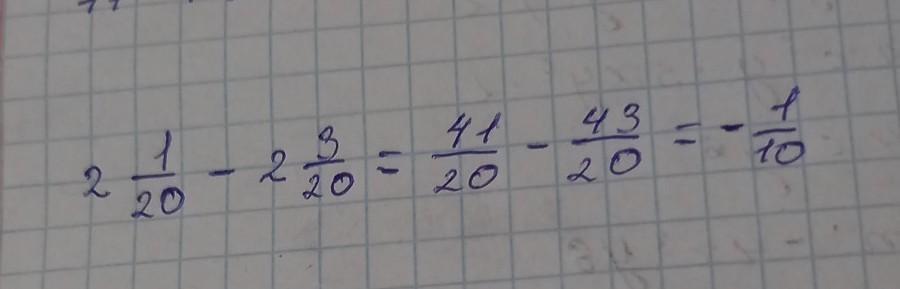 2 1/20 - 2 3/20 = 41/20 - 43/20 = - 1/10